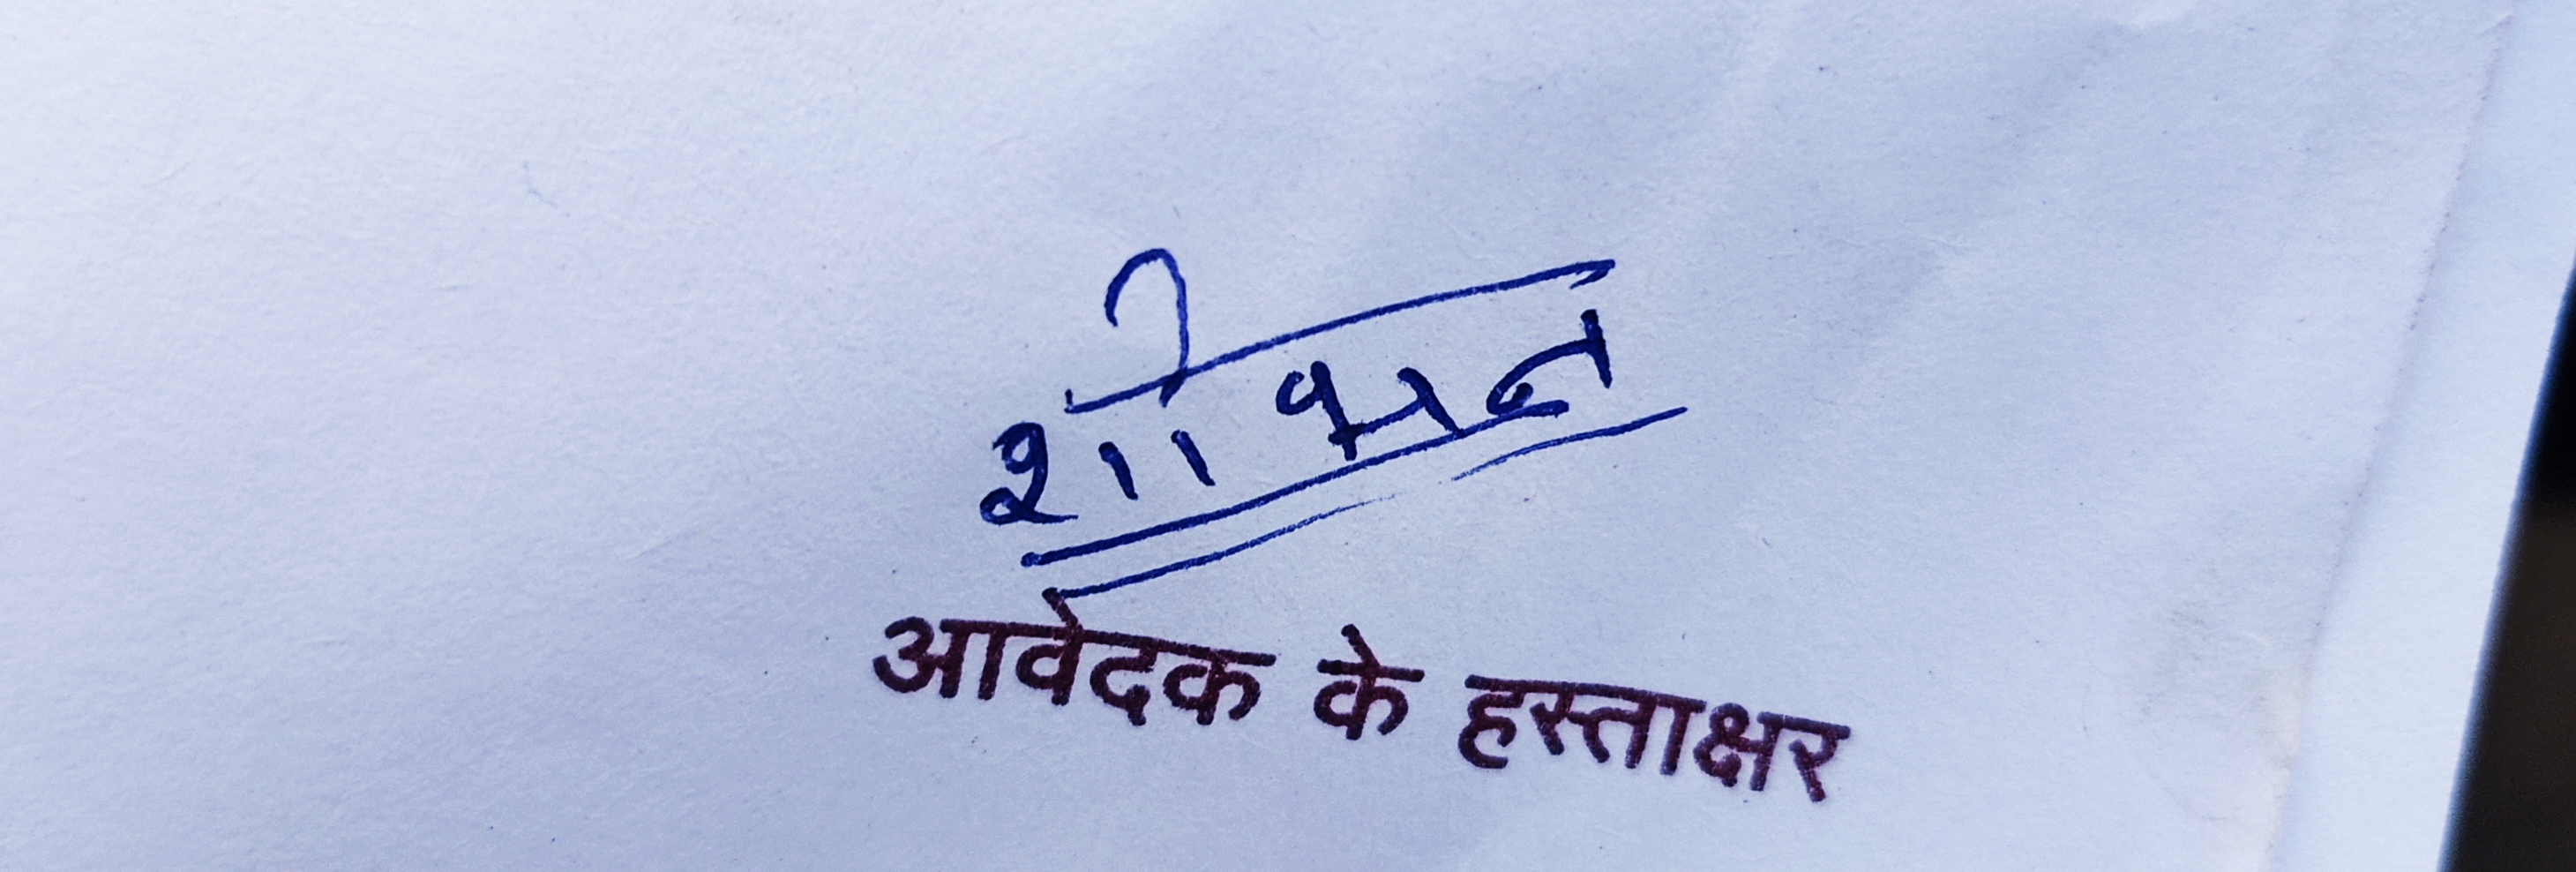 शोभन
आवेदक के हस्ताक्षर